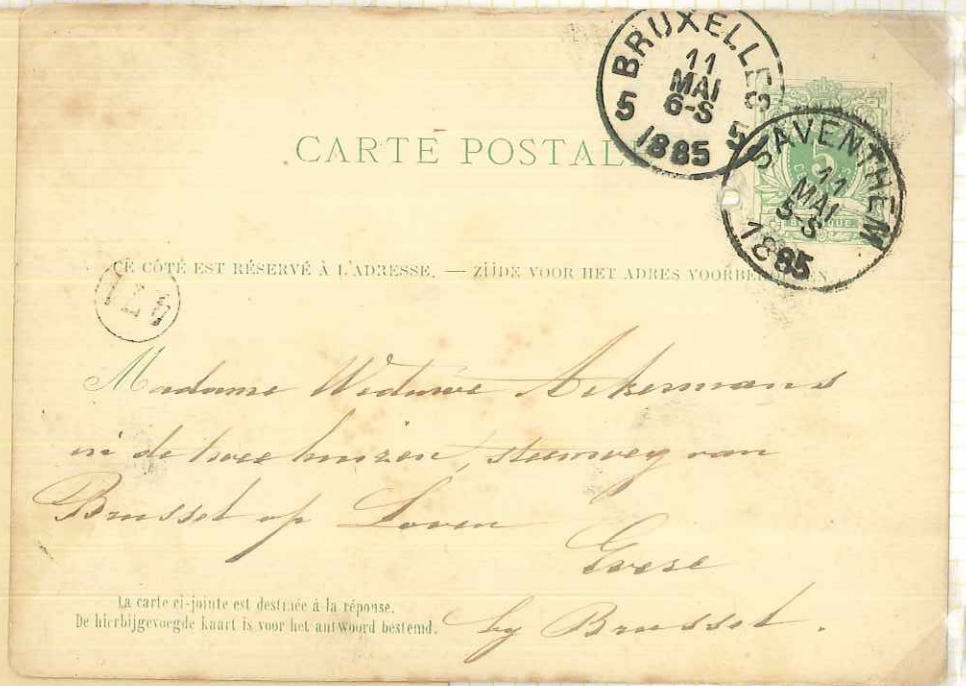 BRUXELLES
11
MAI
6-S
5 5
1885
SAVENTHEM
11
MAI
5-S
1885
5
CARTE POSTAL
CE CÔTÉ EST RÉSERVÉ À L'ADRESSE. — ZIJDE VOOR HET ADRES VOORBEHOUDEN.
Madame Weduwe Ackermans
in de twee huizen, steenweg van
Brussel op Loven
Evese
by Brussel.
La carte ci-jointe est destinée à la réponse.
De hierbijgevoegde kaart is voor het antwoord bestemd.